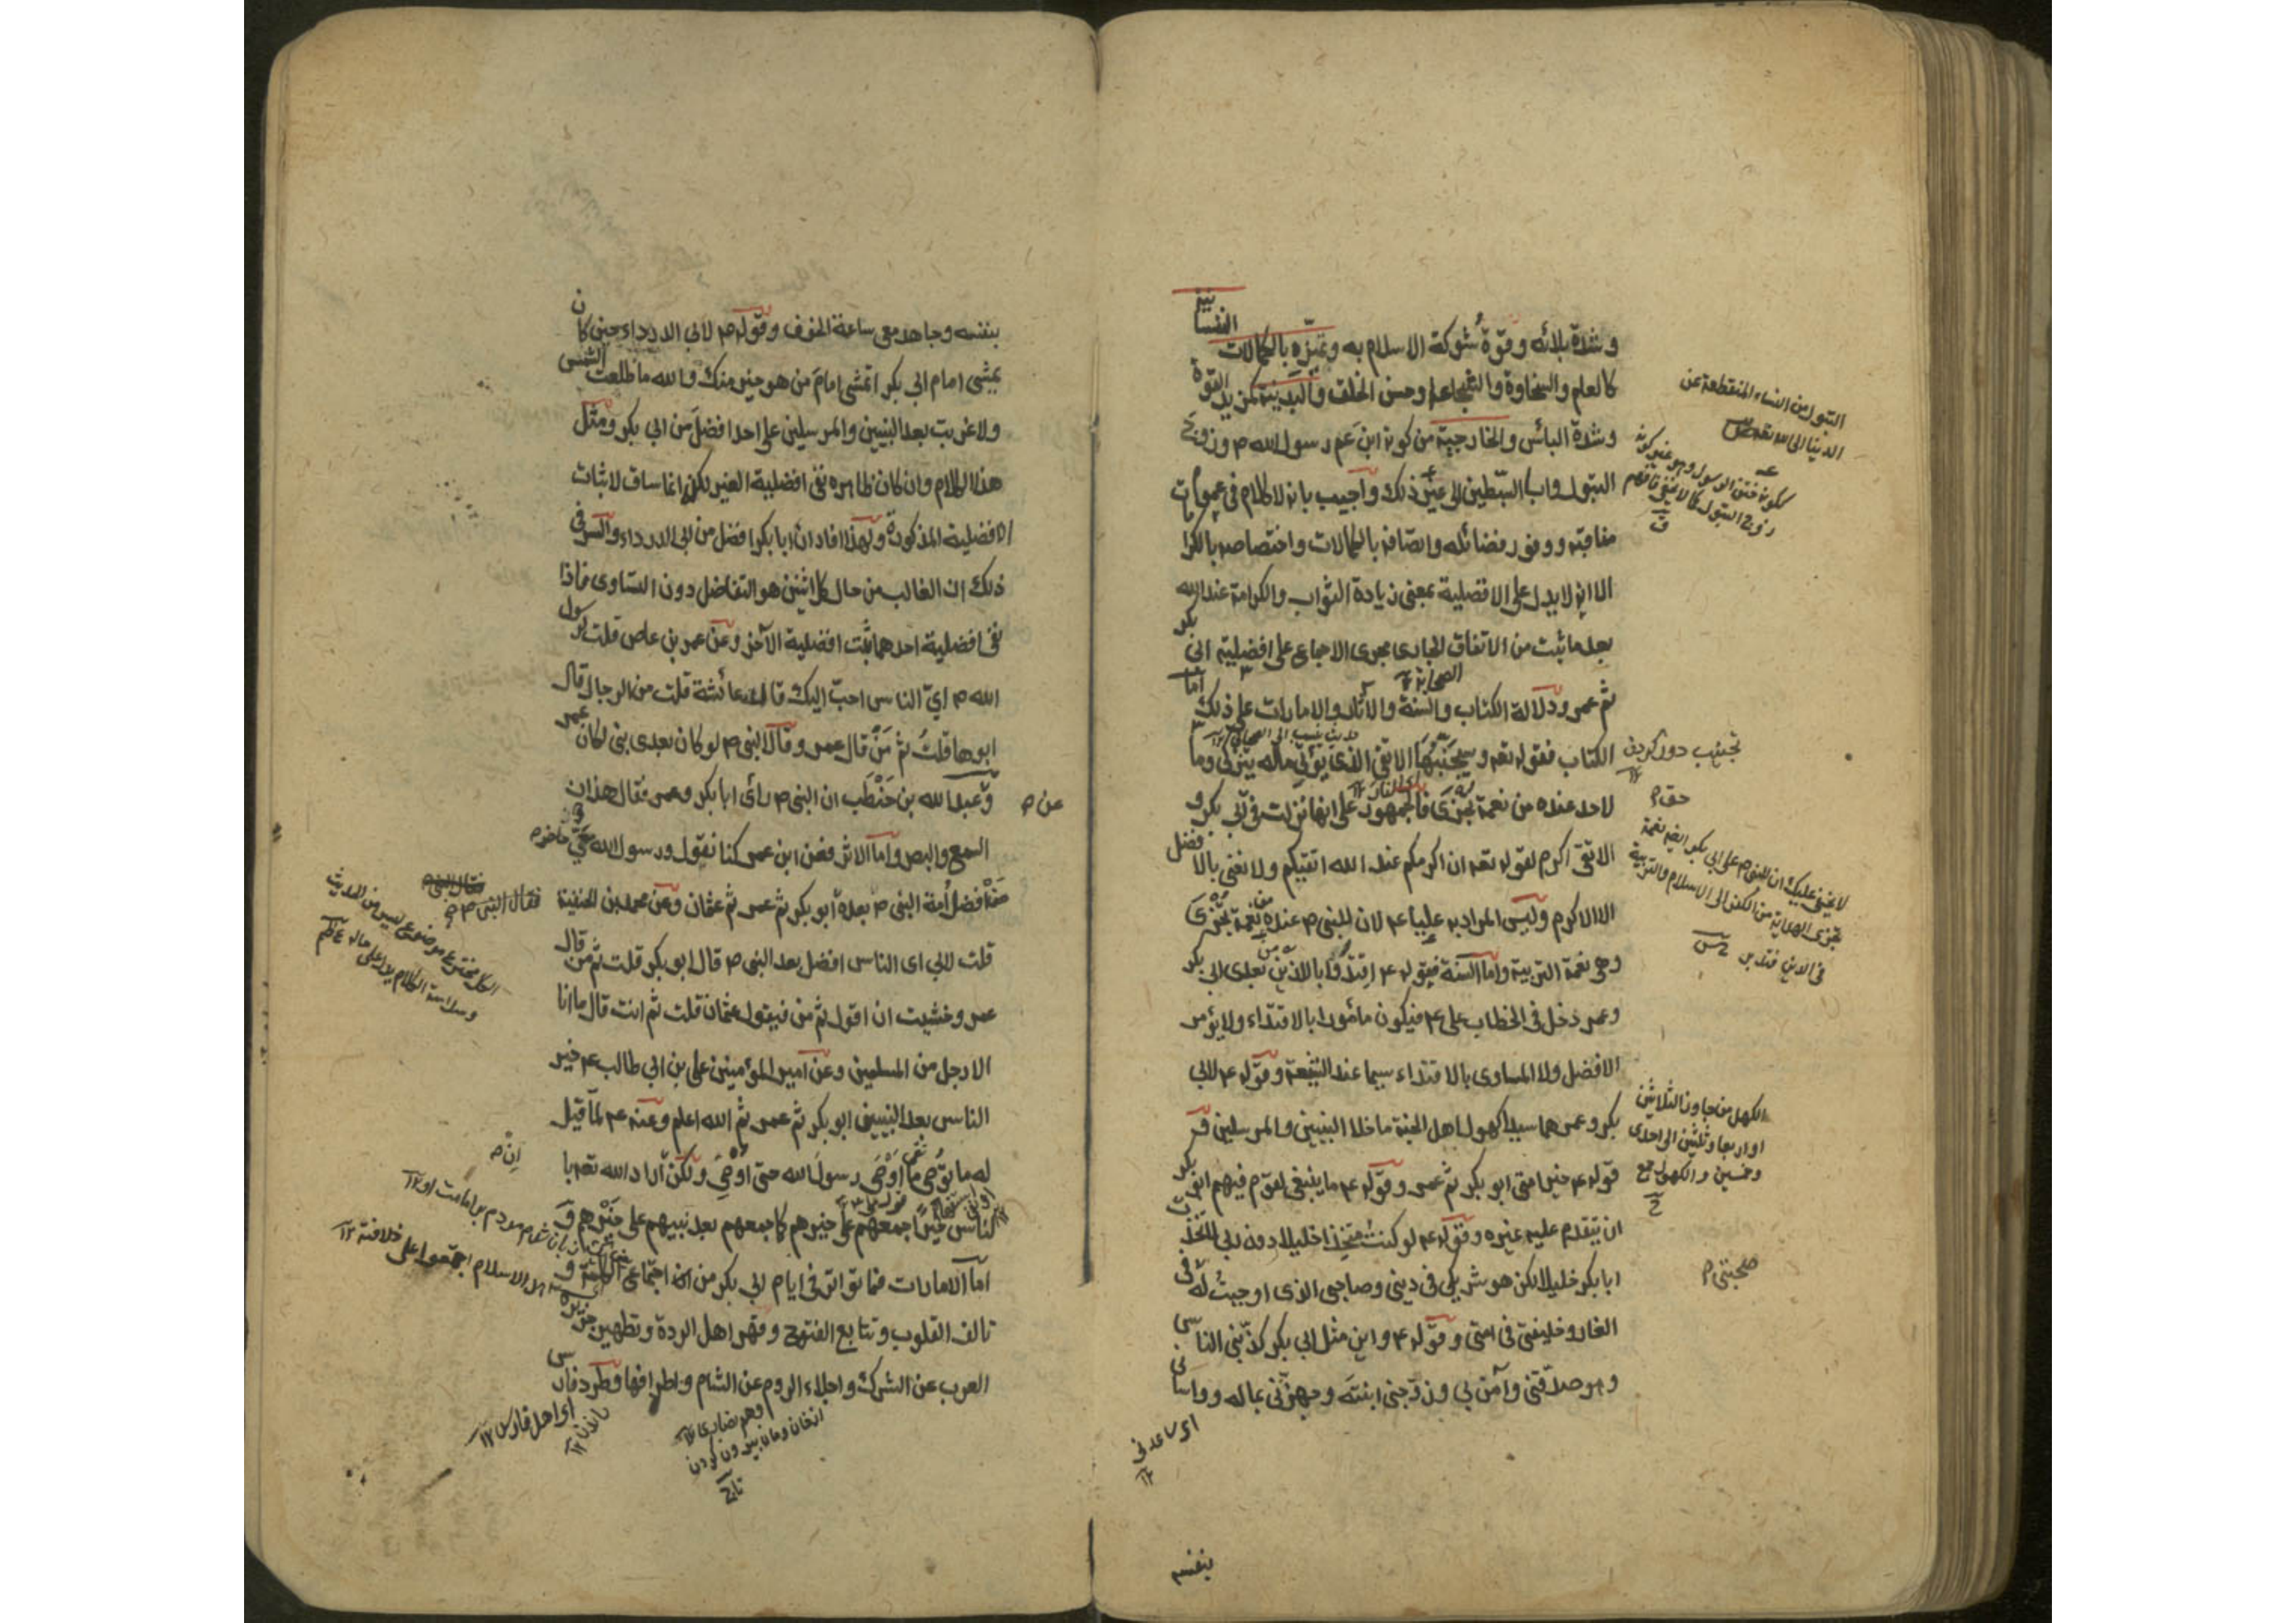 وشدة بلائه وقوة شوكة الاسلام به وتميزه بالكمالات النفسانية
كالعلم والسخاوة والشجاعة وحسن الخلق والبدنية كمزيد القوة
وشدة البأس والخارجية من كونه ابن عم رسول الله ص وزوج
البتول واب السبطين الى غير ذلك واجيب بانه لا كلام في عموم
مناقبه ووفور فضائله واتصافه بالكمالات واختصاصه بالكرامات
الا انه لا يدل على الافضلية بمعنى زيادة الثواب والكرامة عند الله
بعد ما ثبت من الاتفاق الجارى مجرى الاجماع على افضلية ابى بكر
ثم عمر ودلالة الكتاب والسنة والآثار والامارات على ذلك اما
الكتاب فقوله تعه وسيجنبها الاتقى الذى يؤتى ماله يتزكى وما
لاحد عنده من نعمة تجزى فالجمهور على انها نزلت في ابى بكر و
الاتقى اكرم لقوله تعه ان اكرمكم عند الله اتقيكم ولا نعنى بالافضل
الا الاكرم وليس المراد به عليا ع لان للنبى ص عنده نعمة تجزى
وهى نعمة التربية واما السنة فقوله ع اقتدوا بالذين من بعدى ابى بكر
وعمر دخل في الخطاب على ع فيكون مأمورا بالاقتداء ولا يؤمر
الافضل ولا المساوى بالاقتداء سيما عند الشيعة وقوله ع لابى
بكر وعمر هما سيدا كهول اهل الجنة ما خلا النبيين والمرسلين و
قوله ع خير امتى ابو بكر ثم عمر وقوله ع ما ينبغى لقوم فيهم ابو بكر
ان يتقدم عليه غيره وقوله ع لو كنت متخذا خليلا دون ربى لاتخذت
ابا بكر خليلا لكن هو شريكى في دينى وصاحبى الذى اوجبت له في
الغار وخليفتى في امتى وقوله ع واين مثل ابى بكر كذبنى الناس
وهو صدقنى وآمن بى وزوجنى ابنته وجهزنى بماله وواسانى
بنفسه
البتول من النساء المنقطعة عن
الدنيا الى الله تعه
تجنيب دور كردن
حق
لا يخفى عليك ان للنبى ص على ابى بكر ايضا نعمة
تجزى الهداية من الكفر الى الاسلام والتربية
في الدين فتدبر
الكهل من جاوز الثلاثين
او اربعا وثلثين الى احدى
وخمسين والكهول جمع
صحبتى
اى ساعدنى
بنفسه وجاهد معى ساعة الخوف وقوله ص لابى الدرداء حين كان
يمشى امام ابى بكر اتمشى امام من هو خير منك والله ما طلعت الشمس
ولا غربت بعد النبيين والمرسلين على احد افضل من ابى بكر ومثل
هذا الكلام وان كان ظاهره نفى افضلية الغير لكن انما ساق لاثبات
الافضلية المذكورة ولهذا افاد ان ابا بكر افضل من ابى الدرداء والسر في
ذلك ان الغالب من حال كل اثنين هو التفاضل دون التساوى فاذا
نفى افضلية احدهما ثبت افضلية الآخر وعن عمر بن عاص قلت لرسول
الله ص اى الناس احب اليك قال عائشة قلت من الرجال قال
ابوها قلت ثم من قال عمر وقال النبى ص لو كان بعدى نبى لكان عمر
وعبد الله بن حنطب ان النبى ص رأى ابا بكر وعمر فقال هذان
السمع والبصر واما الاثر فعن ابن عمر كنا نقول ورسول الله حى
افضل أمة النبى ص بعده ابو بكر ثم عمر ثم عثمان وعن محمد بن الحنفية
قلت لابى اى الناس افضل بعد النبى ص قال ابو بكر قلت ثم من قال
عمر وخشيت ان اقول ثم من فيقول عثمان قلت ثم انت قال ما انا
الا رجل من المسلمين وعن امير المؤمنين على بن ابى طالب ع خير
الناس بعد النبيين ابو بكر ثم عمر ثم الله اعلم وعنه ع لما قيل
له ما توصى ما اوصى رسول الله حتى اوصى ولكن اراد الله تعه با
لناس خيرا جمعهم على خيرهم كما جمعهم بعد نبيهم على خيرهم و
اما الامارات فما تواتر في ايام ابى بكر من اجتماع الكلمة و
تالف القلوب وتتابع الفتوح وقهر اهل الردة وتطهير جزيرة
العرب عن الشرك واجلاء الروم عن الشام واطرافها وطرد فارس
عن
فقال النبى ص
ان
اهل الاسلام اجتمعوا على خلافته ١٢
اى اهل فارس ١٢
وهم نصارى